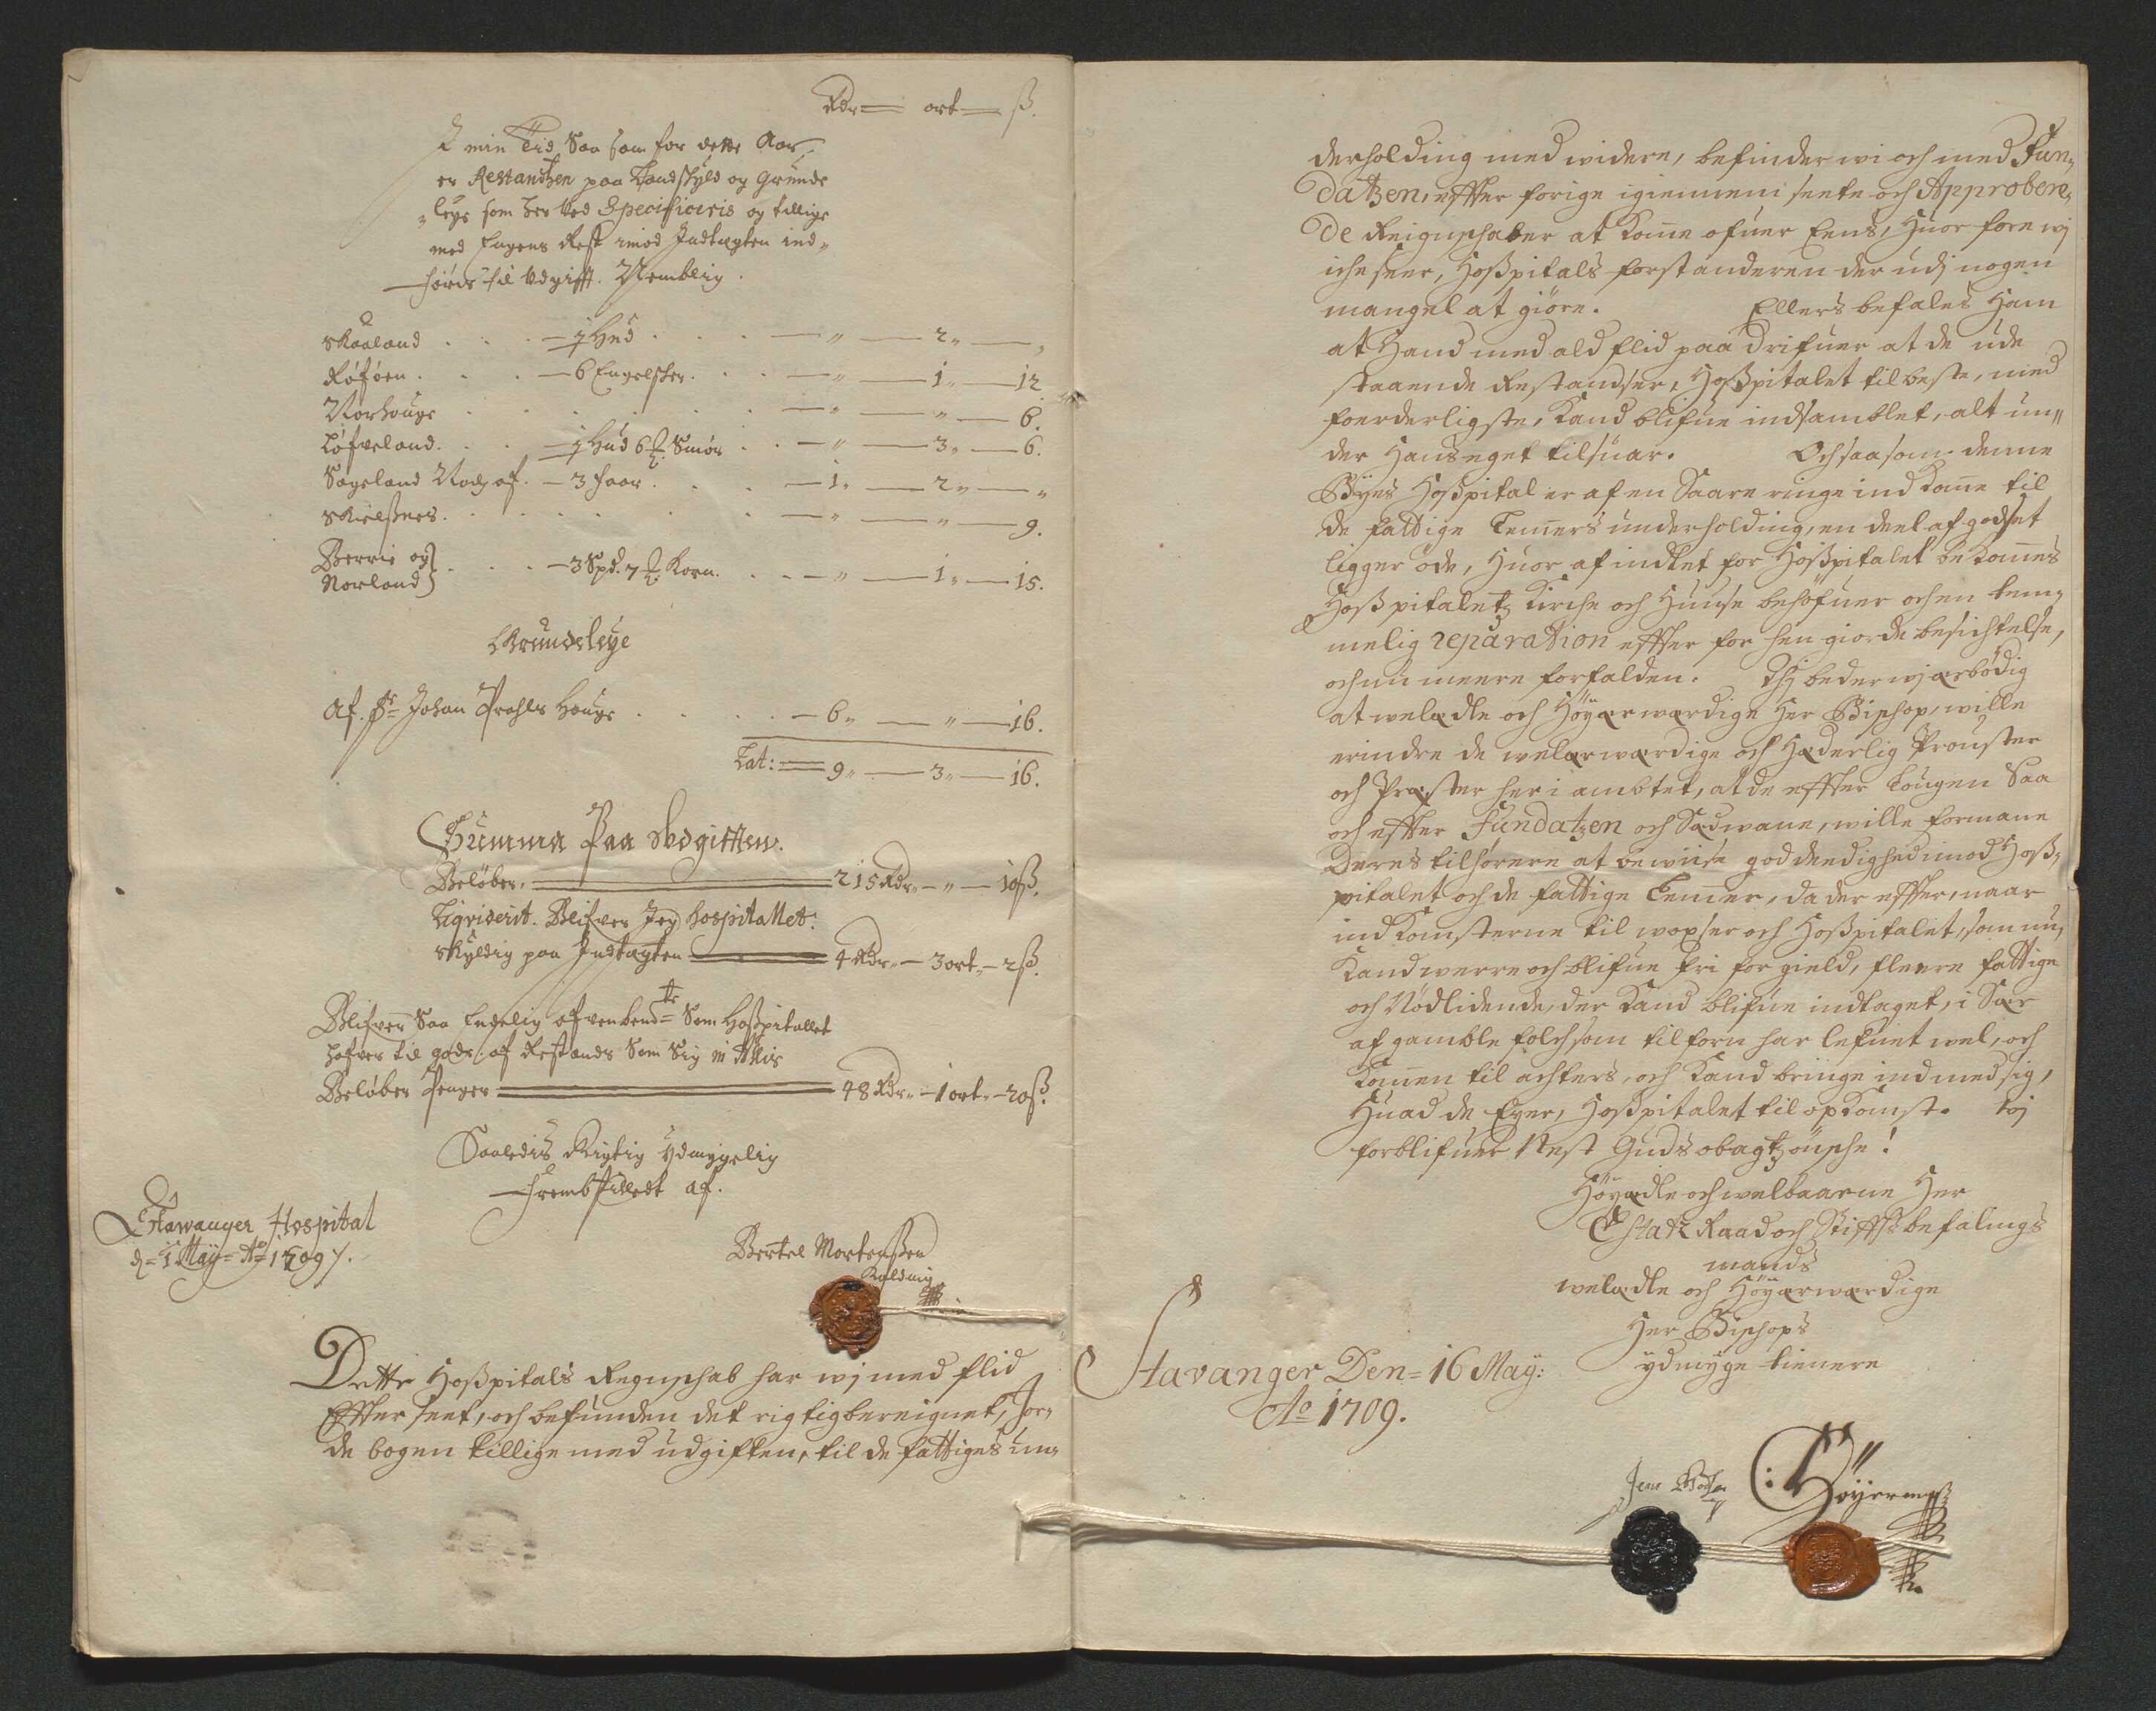 Rdr ort ß.
I min Tid Saa som for dette Aar,
er Restandtzen paa Landskyld og Grunde
„leye som her Ved Specificeris og tillige
med Engens Rest imod Indtægten ind„
føris til Udgifft. Nemblig.
Skaaland . . . — ½ Hud . . . — „ — 2 „ — „
Røføen . . . — 6 Engelsker . . — „ — 1 „ — 12
Norhouge . . . . . . — „ — „ — 6.
Løfveland . . — ½ Hud 6 ℔. Smør . . — „ — 3 „ — 6.
Sageland Nock af. — 3 faar . . . — 1 „ — 2 „ — „
Skielßnes . . . . . . — „ — „ — 9.
Berrie og}
Norland} . . . — 3 Spd. 7 ℔. Korn. . . — „ — 1 „ — 15.
Grundeleye
Af. Sr Johan Prahls Houge . . . . — 6 „ — „ — 16.
Lat: 9 „ — 3 „ — 16.
Summa Paa Udgifften.
Beløber, 215 Rdr „ — „ — 10 ß.
Liqviderit. Blifver Jeg hospitallet
skyldig paa Indtægten 4 Rdr „ — 3 ort „ — 2 ß.
Blifver Saa Endelig Som Hoßpitallet
hafver til gode af Restands Som Sig in Alles
Beløber Penger 48 Rdr „ — 1 ort „ — 20 ß.
Saaledis Rigtig Ydmygelig
frembstilledt af.
Stawanger Hospital
d = 1 Maÿ = Ao 1709.
Bertel Mortenßen
Kolding
Dette Hoßpitals Regnschab har wj med flid
Effter seet, och befunden det rigtig bereignet, Jor„
de bogen tillige med udgiften, til de fattiges un„
derholding med widere, befinder wi och med Fun„
datzen, effter forige igiennem seete och Approbere„
de Reignschaber at komme ofuer Eens, huor fore wj
iche seer, Hoßpitals forstanderen der udj nogen
mangel at giöre. Ellers befales Ham
at Hand med ald flid paa drifuer at de ude
staaende Restandser, Hoßpitalet til beste, med
foerderligste, kand blifue indsamblet, alt un„
der Hans eget tilsuar. Och saasom denne
Byes Hoßpital er af en Saare ringe ind kome til
de fattige Lemers underholding, en deel af godset
ligger öde, Huor af indtet for Hoßpitalet be komes
Hoßpitaletz Kirche och Huuse behöfuer och en tem„
melig reparation effter for hen giorde besichtelse,
och nu meere forfalden. Thj beder wj ærbödig
at welædle och Höyærwærdige Her Bischop, wille
erindre de welærwærdige och Hæderlig Prouster
och Præster her i ambtet, at de effter Lougen Saa
och effter Fundatzen och Sædwane, wille formane
Deres tilhörere at bewiise goddædighed imod Hoß„
pitalet och de fattige Lemer, da der effter, naar
ind komsterne til woxser och Hoßpitalet, som nu,
kand werre och blifue fri for gield, fleere fattige
och Nödlidende, der kand blifue indtaget, i Sær
af gamble folch som tilforn har lefuet wel, och
komen til achters, och kand bringe ind med sig,
Huad de Eyer, Hoßpitalet til opkomst. Wj
forblifuer Nest Guds obagtz önsche!
Höyædle och welbaarne Her
Etatz Raad och Stiffts befalings
mands
welædle och Höyærwærdige
Her Bischops
ydmyge tienere
Stavanger Den = 16 May:
Ao 1709.
Jens